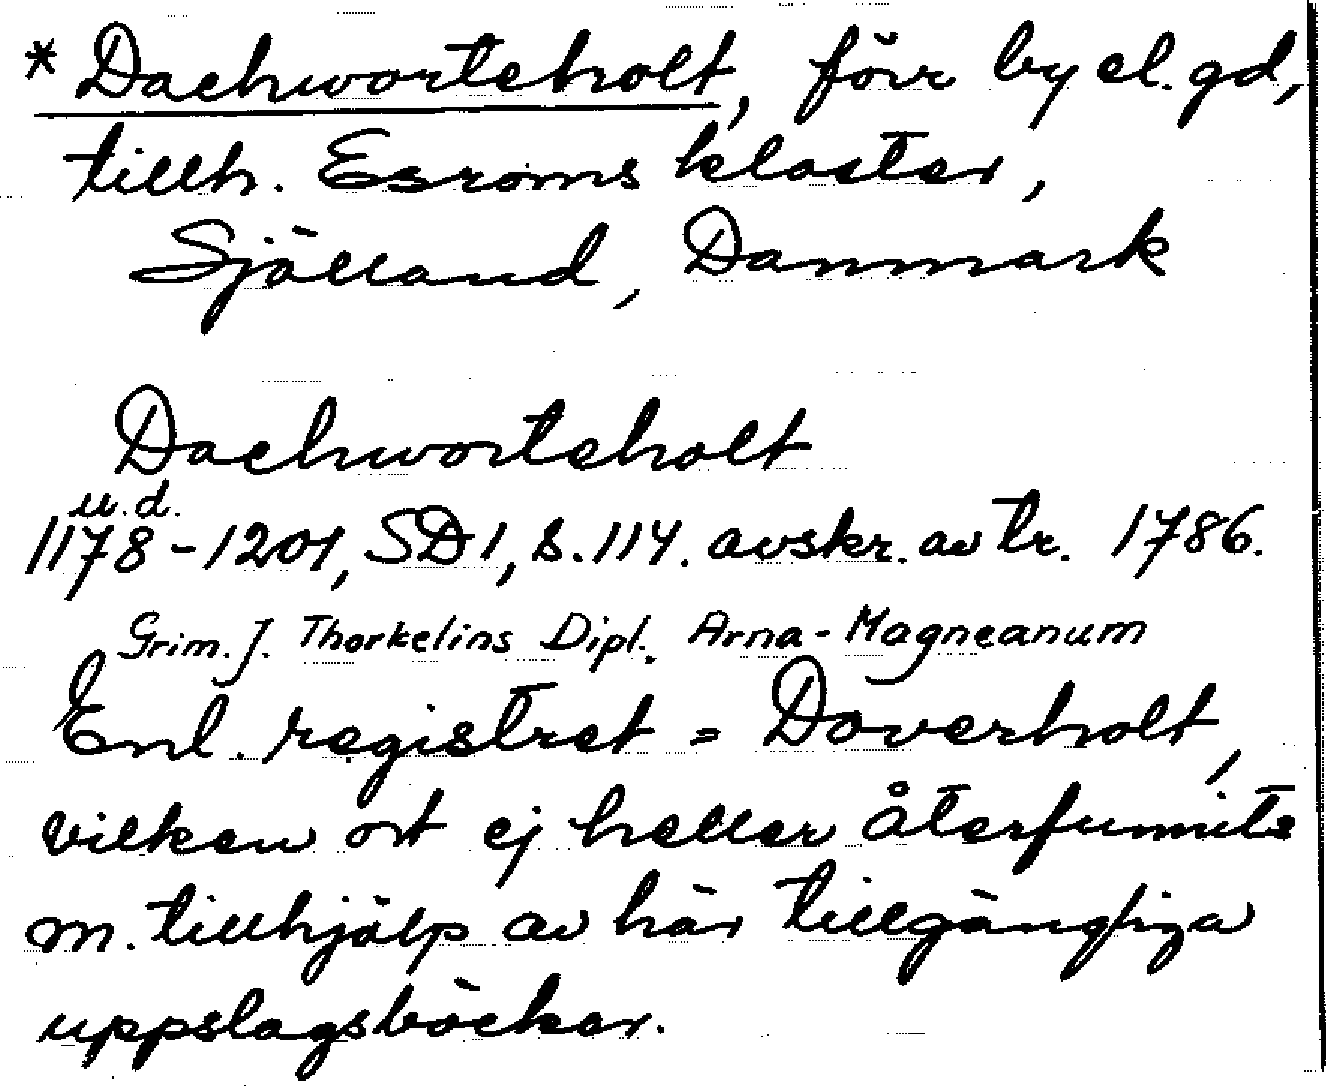 * Dachworteholt, förr by el. gd,
tillh. Esroms kloster,
Själland, Danmark
Dachworteholt
u.d.
1178-1201, SD 1, s. 114. avskr. av tr. 1786.
Grim. J. Thorkelins Dipl. Arna-Magneanum
Enl. registret = Doverholt,
vilken ort ej heller återfunnits
m. tillhjälp av här tillgängliga
uppslagsböcker.